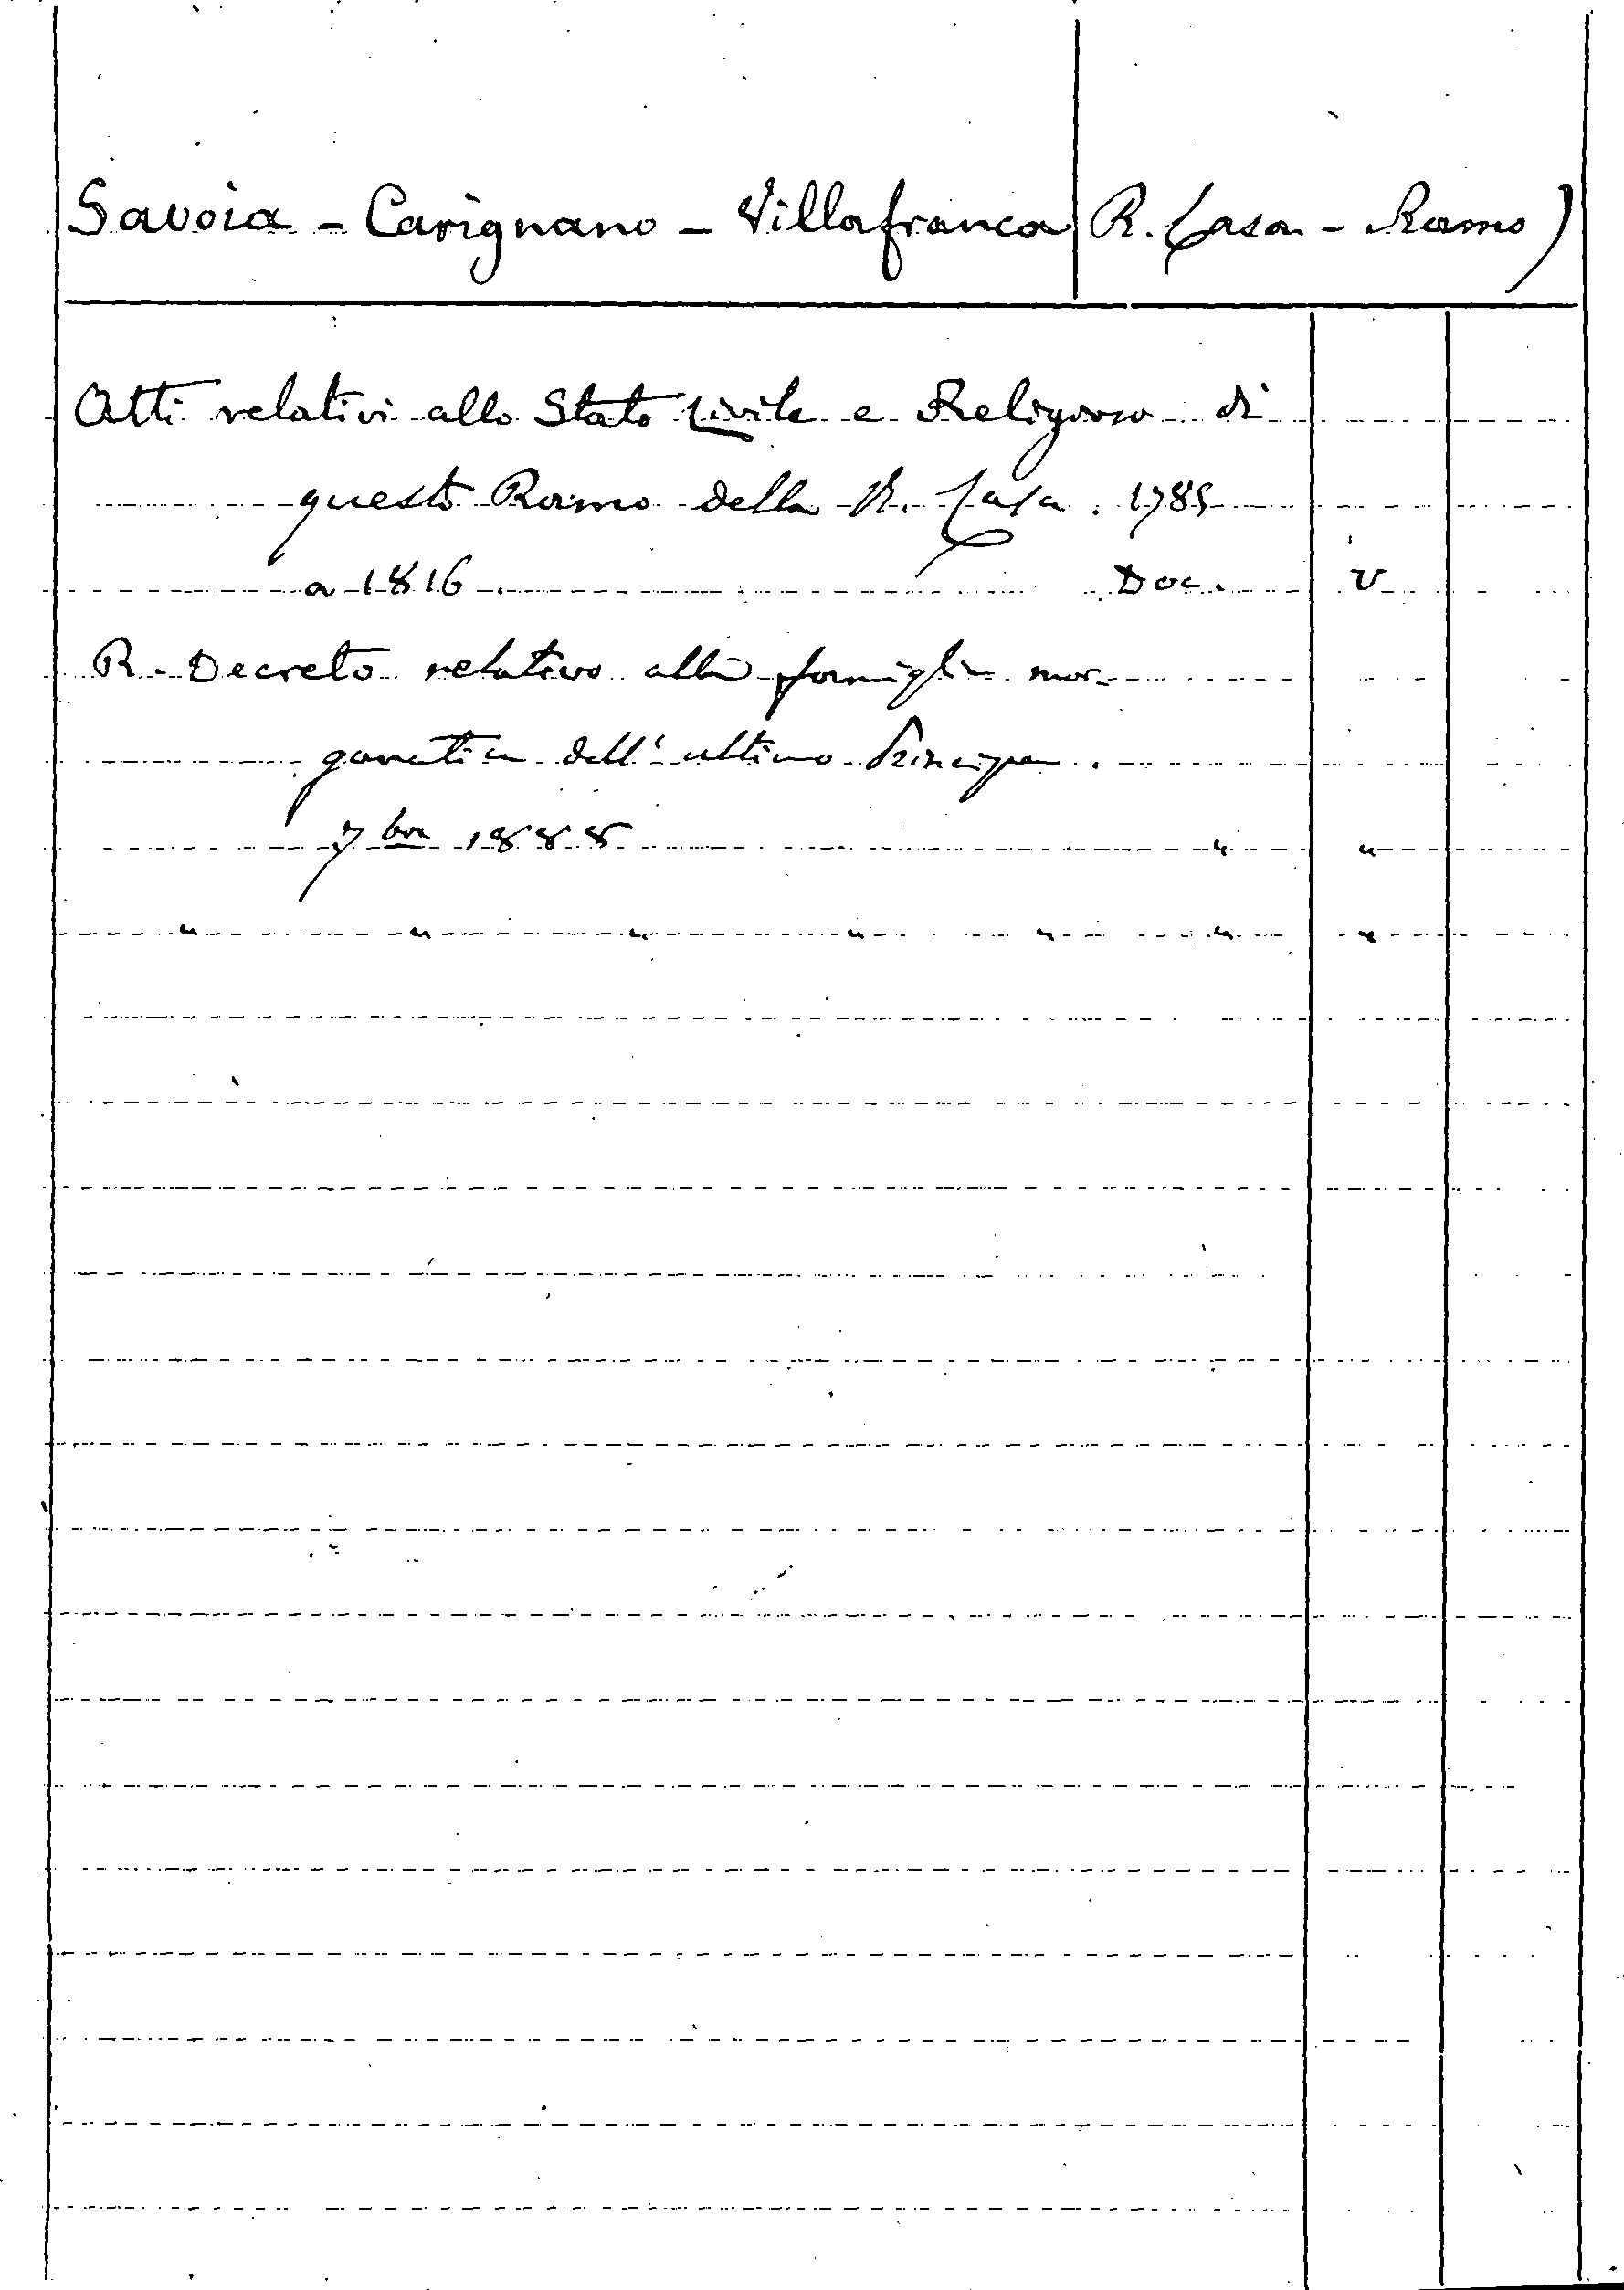 Savoia - Carignano - Villafranca (R. Casa - Ramo)
Atti relativi allo Stato Civile e Religioso di
questo Ramo della R. Casa. 1785
a 1816. Doc. V
R. Decreto relativo alla famiglia mor-
ganatica dell' ultimo Principe.
7bre 1888 " "
" " " " " " "